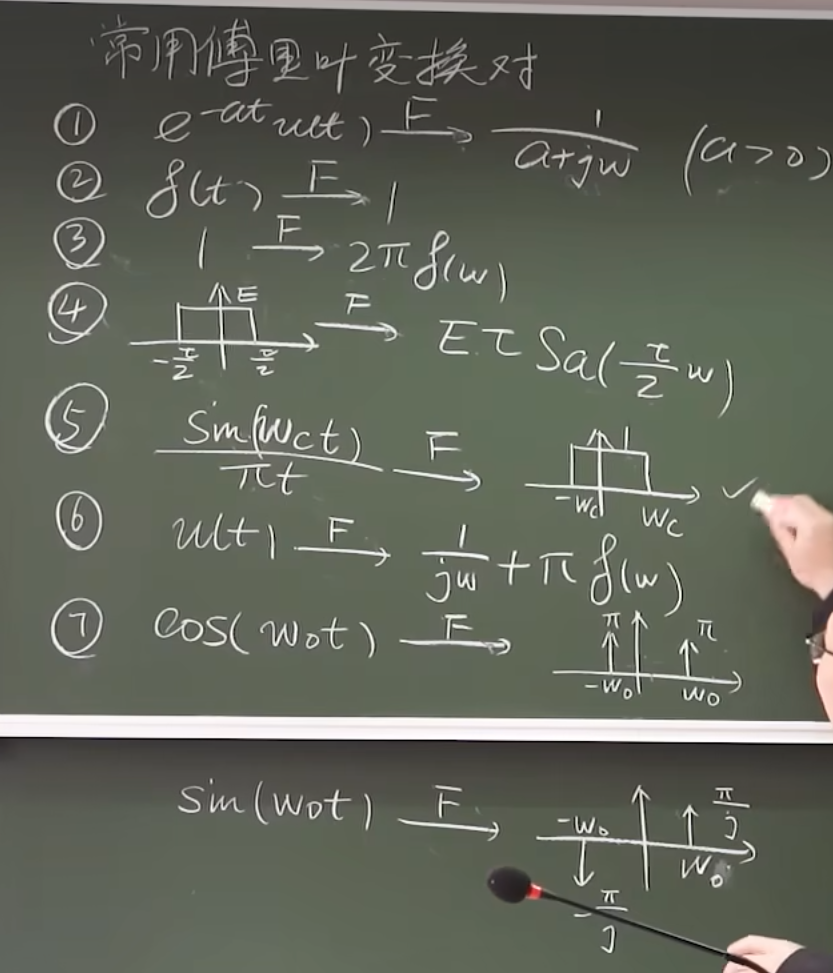 常用傅里叶变换对
① e^{-at}u(t) —F→ 1/(a+jw) (a>0)
② δ(t) —F→ 1
③ 1 —F→ 2πδ(w)
④ E -τ/2 τ/2 —F→ Eτ Sa(τ/2 w)
⑤ sin(wct)/πt —F→ 1 -wc wc ✓
⑥ u(t) —F→ 1/jw + πδ(w)
⑦ cos(w0t) —F→ π π -w0 w0
sin(w0t) —F→ -w0 π/j w0 -π/j